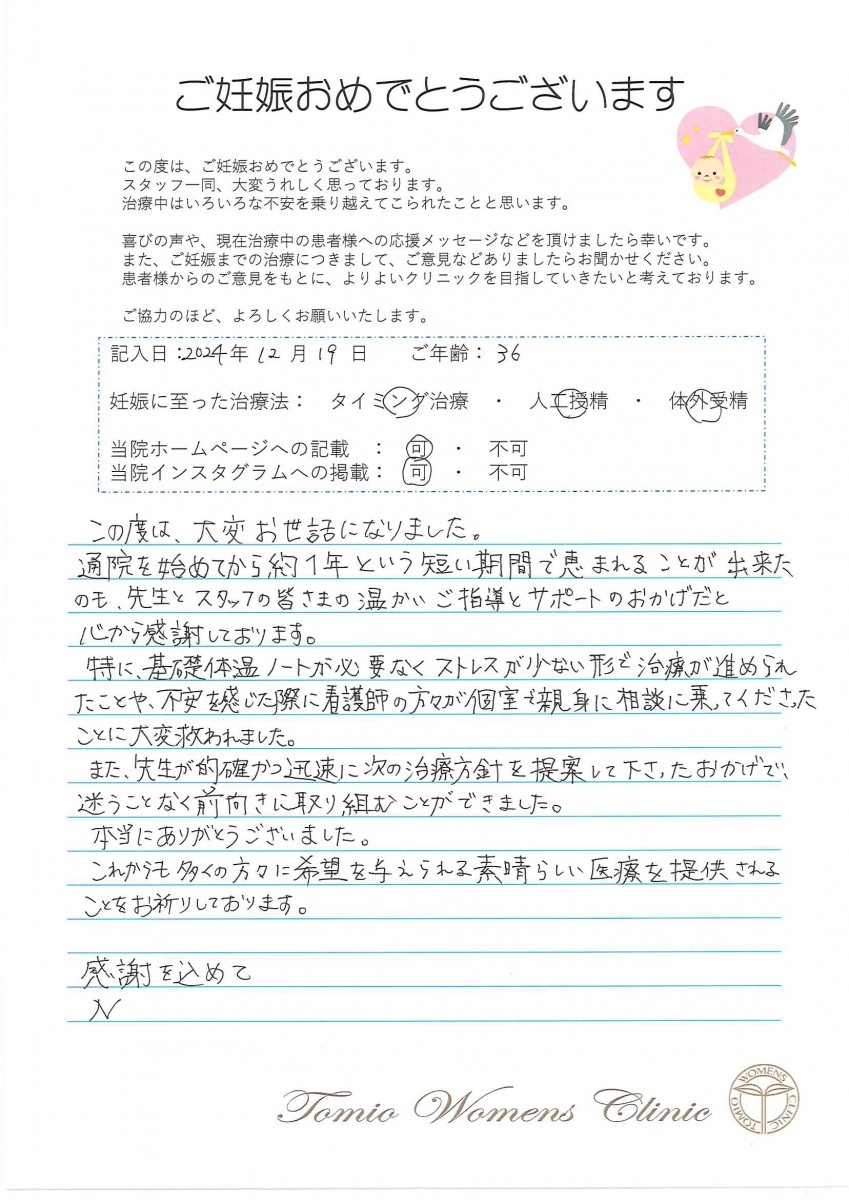 ご妊娠おめでとうございます
この度は、ご妊娠おめでとうございます。
スタッフ一同、大変うれしく思っております。
治療中はいろいろな不安を乗り越えてこられたことと思います。
喜びの声や、現在治療中の患者様への応援メッセージなどを頂けましたら幸いです。
また、ご妊娠までの治療につきまして、ご意見などありましたらお聞かせください。
患者様からのご意見をもとに、よりよいクリニックを目指していきたいと考えております。
ご協力のほど、よろしくお願いいたします。
記入日:2024年 12月 19日 ご年齢: 36
妊娠に至った治療法: タイミング治療 ・ 人工授精 ・ 体外受精
当院ホームページへの記載 : 可 ・ 不可
当院インスタグラムへの掲載: 可 ・ 不可
この度は、大変お世話になりました。
通院を始めてから約1年という短い期間で恵まれることが出来た
のも、先生とスタッフの皆さまの温かいご指導とサポートのおかげだと
心から感謝しております。
特に、基礎体温ノートが必要なくストレスが少ない形で治療が進められ
たことや、不安を感じた際に看護師の方々が個室で親身に相談に乗ってくださった
ことに大変救われました。
また、先生が的確かつ迅速に次の治療方針を提案して下さったおかげで、
迷うことなく前向きに取り組むことができました。
本当にありがとうございました。
これからも多くの方々に希望を与えられる素晴らしい医療を提供される
ことをお祈りしております。
感謝を込めて
N
Tomio Womens Clinic
TOMIO WOMENS CLINIC